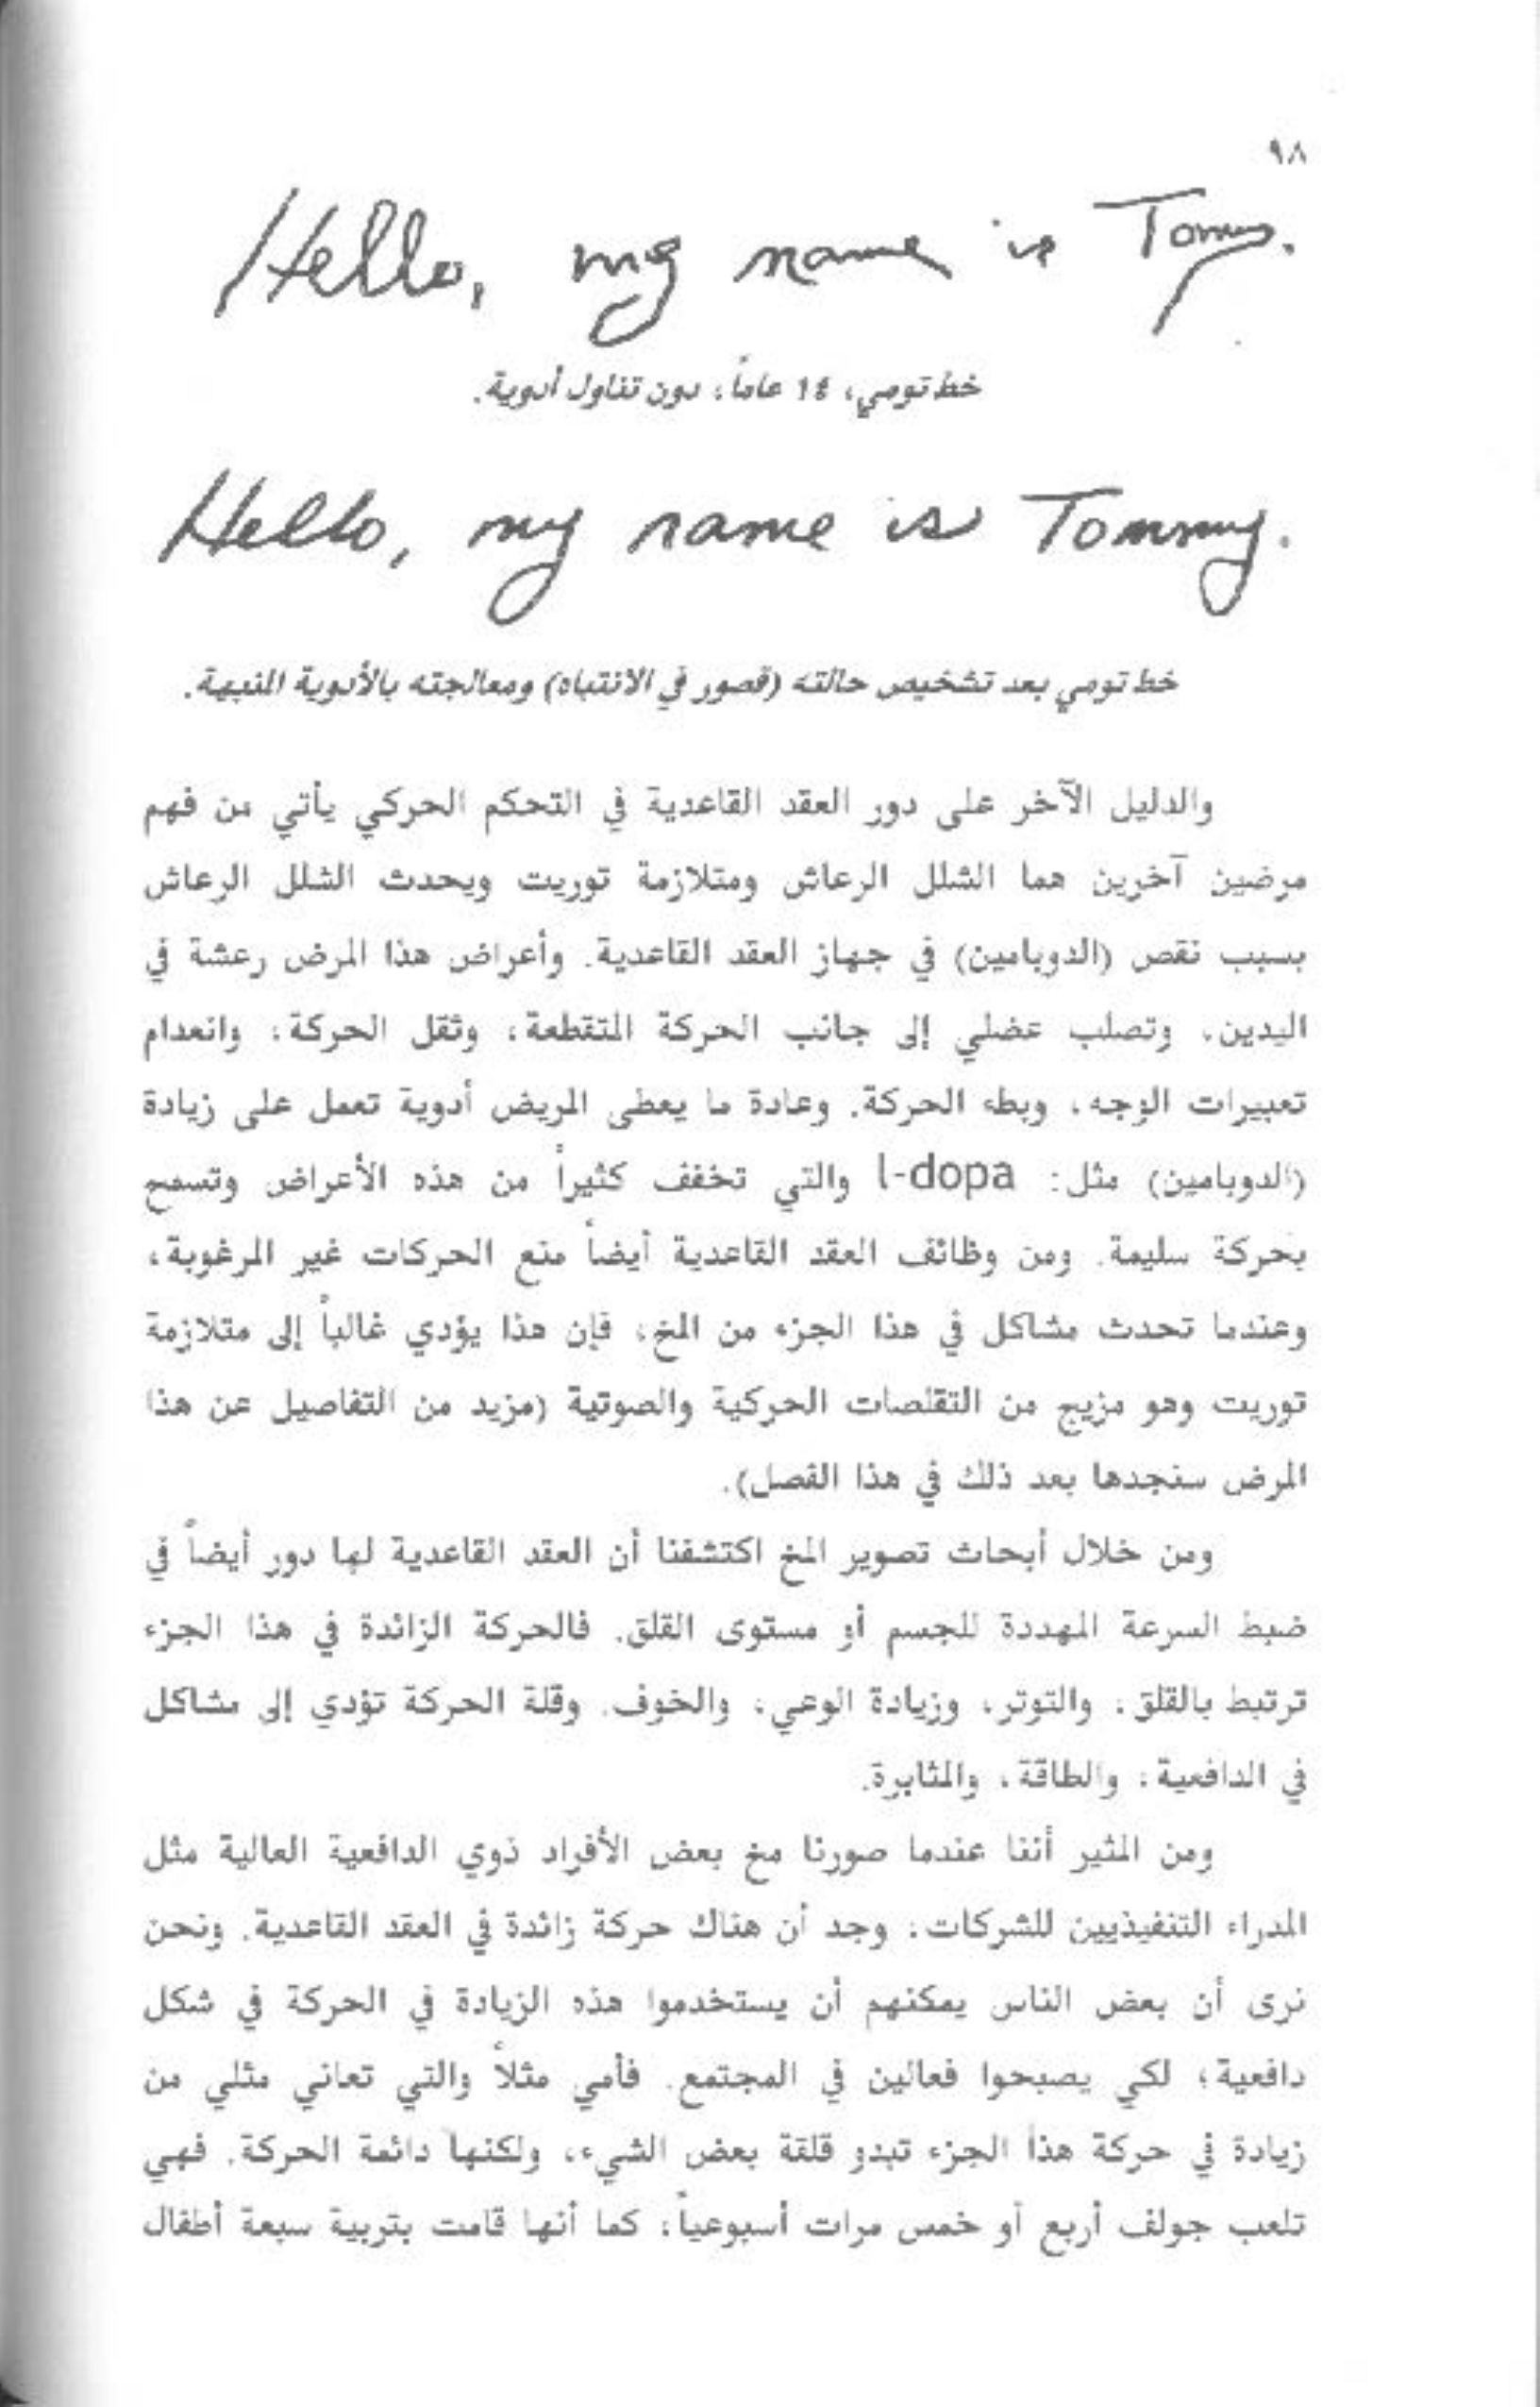 ٩٨
Hello, my name is Tommy.
خط تومي، 14 عاماً، دون تناول أدوية.
Hello, my name is Tommy.
خط تومي بعد تشخيص حالته (قصور في الانتباه) ومعالجته بالأدوية المنبهة.
والدليل الآخر على دور العقد القاعدية في التحكم الحركي يأتي من فهم
مرضين آخرين هما الشلل الرعاش ومتلازمة توريت ويحدث الشلل الرعاش
بسبب نقص (الدوبامين) في جهاز العقد القاعدية. وأعراض هذا المرض رعشة في
اليدين، وتصلب عضلي إلى جانب الحركة المتقطعة، وثقل الحركة، وانعدام
تعبيرات الوجه، وبطء الحركة. وعادة ما يعطى المريض أدوية تعمل على زيادة
(الدوبامين) مثل: l-dopa والتي تخفف كثيراً من هذه الأعراض وتسمح
بحركة سليمة. ومن وظائف العقد القاعدية أيضاً منع الحركات غير المرغوبة،
وعندما تحدث مشاكل في هذا الجزء من المخ، فإن هذا يؤدي غالباً إلى متلازمة
توريت وهو مزيج من التقلصات الحركية والصوتية (مزيد من التفاصيل عن هذا
المرض سنجدها بعد ذلك في هذا الفصل).
ومن خلال أبحاث تصوير المخ اكتشفنا أن العقد القاعدية لها دور أيضاً في
ضبط السرعة المهددة للجسم أو مستوى القلق. فالحركة الزائدة في هذا الجزء
ترتبط بالقلق، والتوتر، وزيادة الوعي، والخوف. وقلة الحركة تؤدي إلى مشاكل
في الدافعية، والطاقة، والمثابرة.
ومن المثير أننا عندما صورنا مخ بعض الأفراد ذوي الدافعية العالية مثل
المدراء التنفيذيين للشركات، وجد أن هناك حركة زائدة في العقد القاعدية. ونحن
نرى أن بعض الناس يمكنهم أن يستخدموا هذه الزيادة في الحركة في شكل
دافعية؛ لكي يصبحوا فعالين في المجتمع. فأمي مثلاً والتي تعاني مثلي من
زيادة في حركة هذا الجزء تبدو قلقة بعض الشيء، ولكنها دائمة الحركة. فهي
تلعب جولف أربع أو خمس مرات أسبوعياً، كما أنها قامت بتربية سبعة أطفال